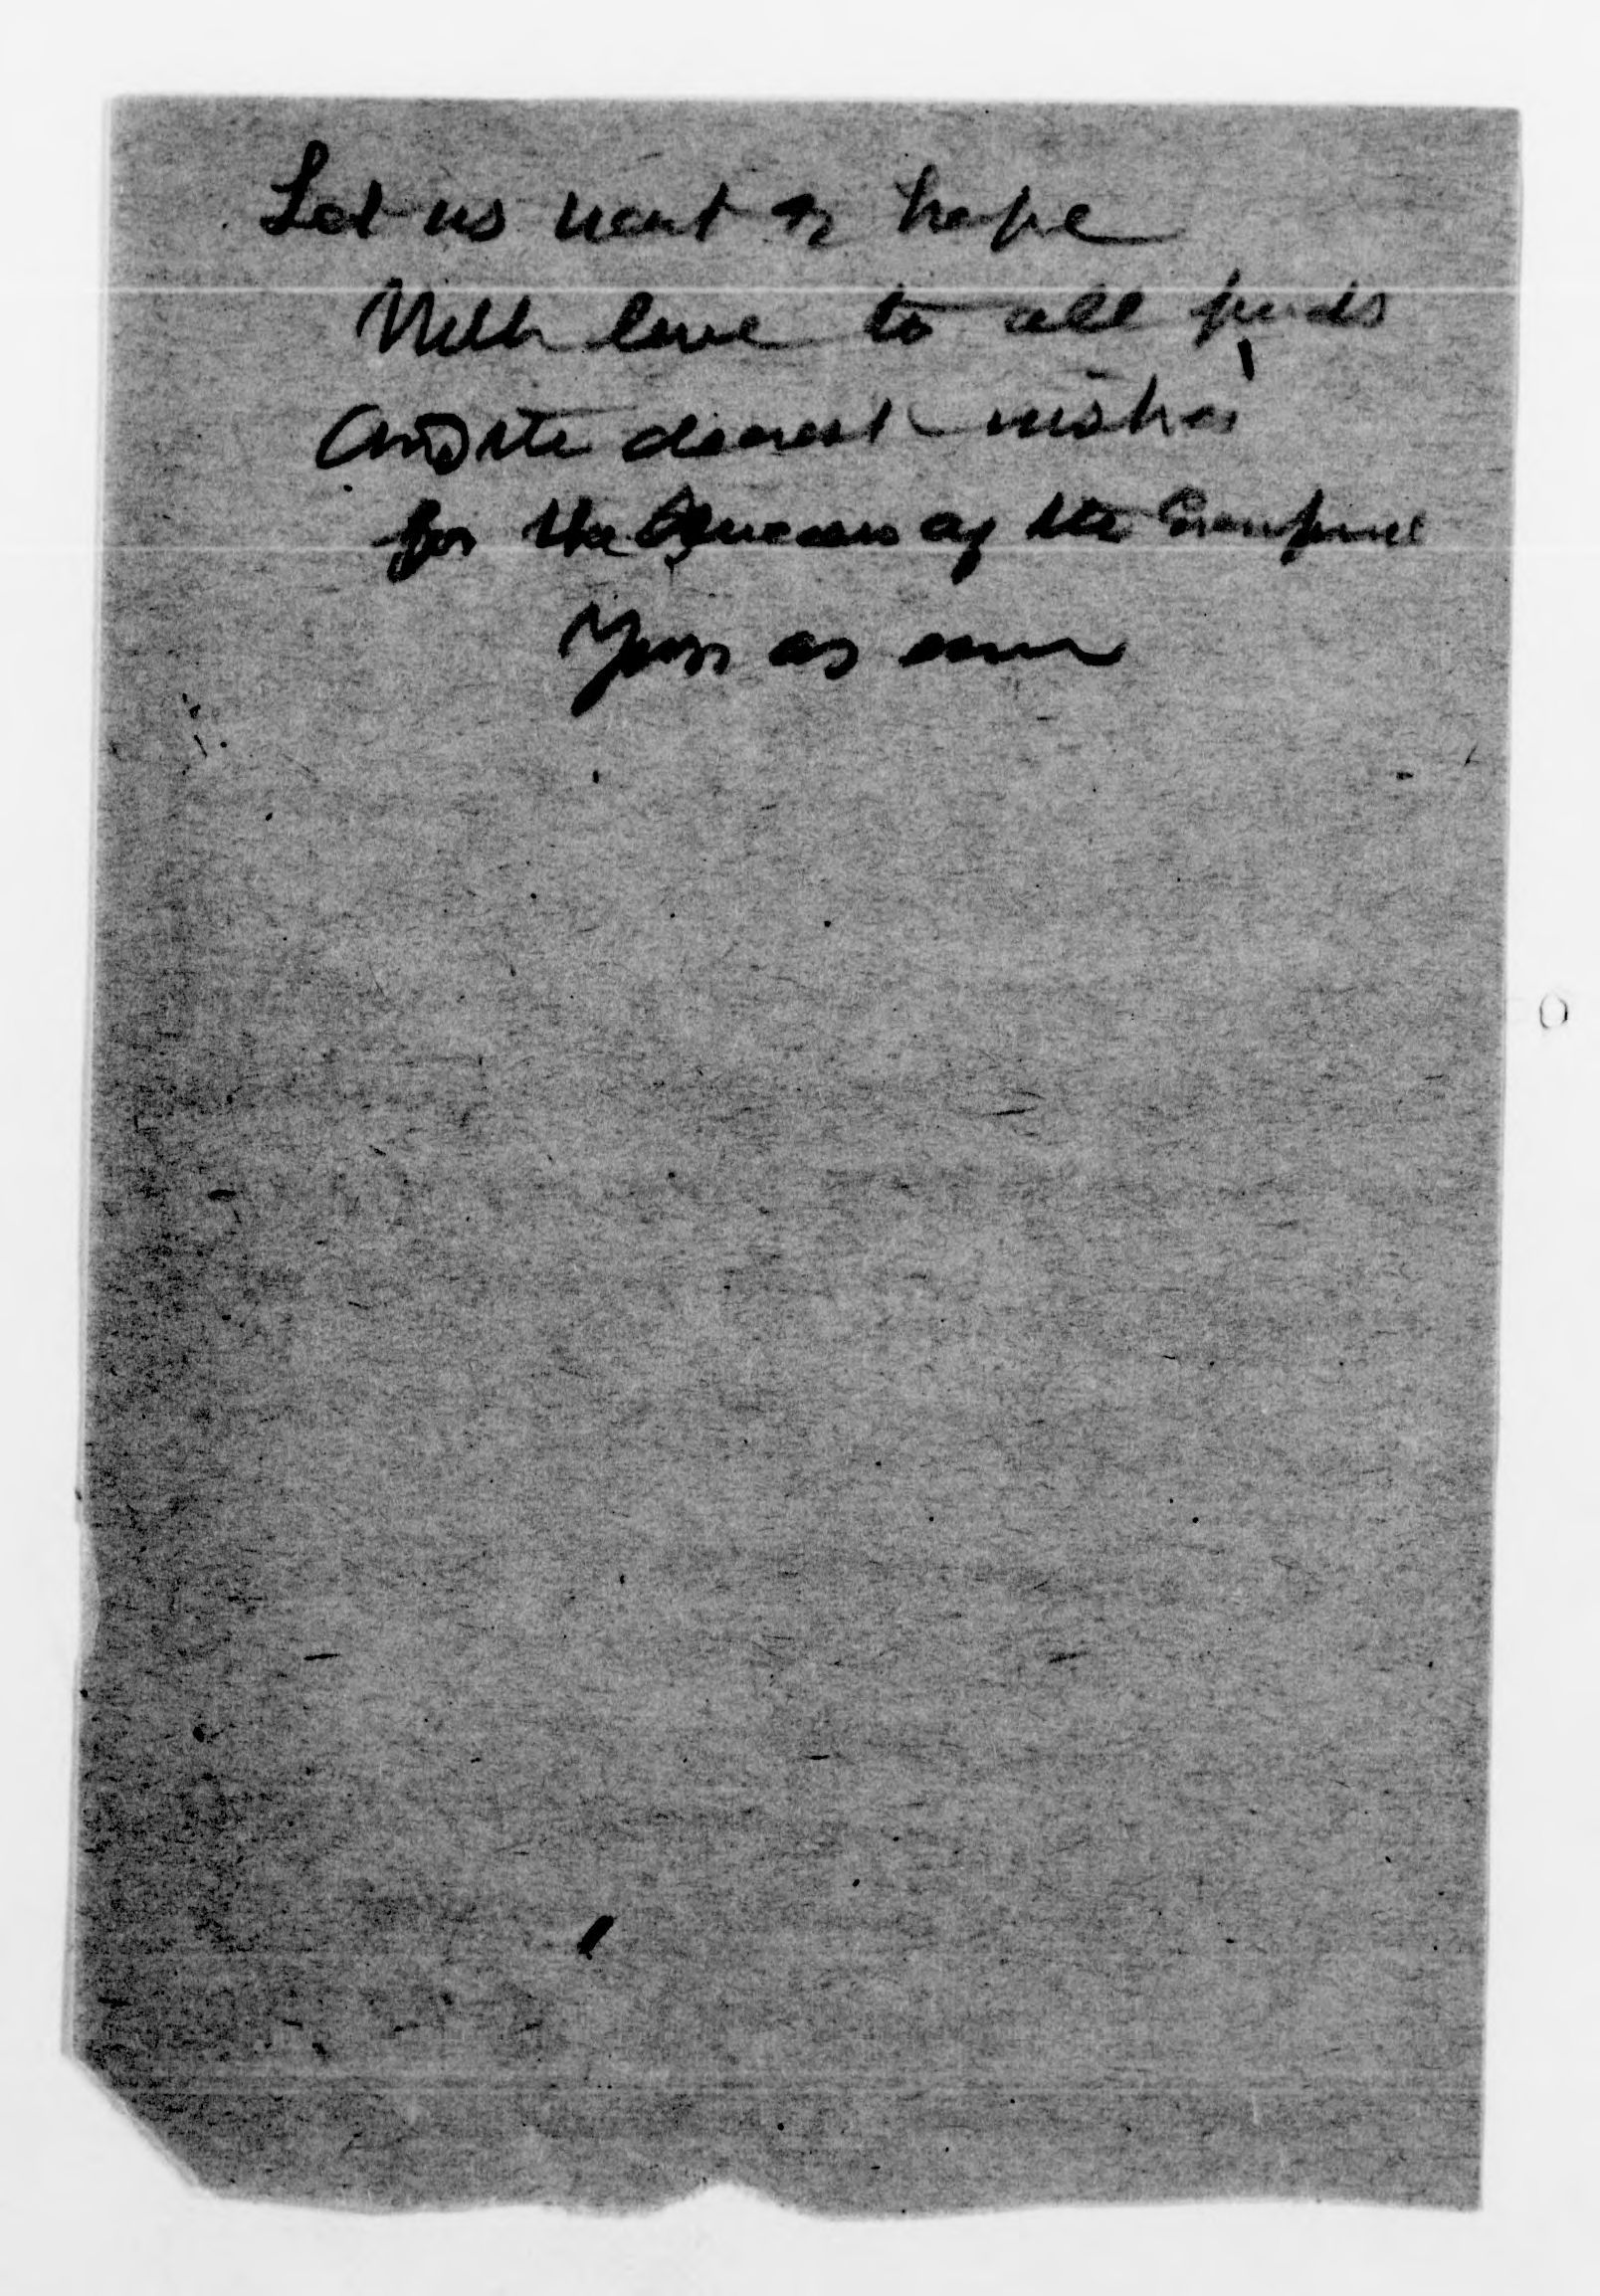 Let us wait & hope
With love to all friends
and the dearest wishes
for the success of the
Yours as ever